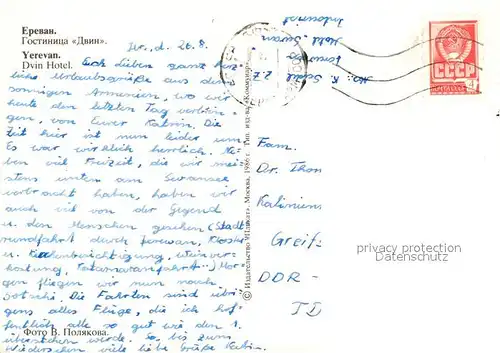 Ереван.
Гостиница «Двин».
Yerevan.
Dvin Hotel.
d. 26.8.
Euch Lieben ganz herz-
liche Urlaubsgrüße aus dem
sonnigen Armenien, wo wir
heute den letzten Tag verbrin-
gen, von Eurer Katrin. Die
Zeit hier ist nun leider um
Es war wirklich herrlich. Ne-
ben viel Freizeit, die wir mei-
stens unten am Sewansee
verbracht haben, haben wir
auch viel von der Gegend
u. den Menschen gesehen (Stadt
rundfahrt durch Jerewan, Kloster
u. Kirchenbesichtigung, Weinver-
kostung, ) Mor-
gen fliegen wir nun nach
Sotschi. Die Fahrten sind übri-
gens alles Flüge, die ich hof-
fentlich alle so gut wie den 1.
überstehen werde. So, bis zum
Wiedersehen viele liebe Grüße Katrin
Фото В. Полякова.
© Издательство «Плакат». Москва. 1986 г. Тип. изд-ва «Коммунист»
z. Z.
Hotel
Intourist
СССР
4
Fam.
Dr. Thon
Greif
DDR -
privacy protection
Datenschutz